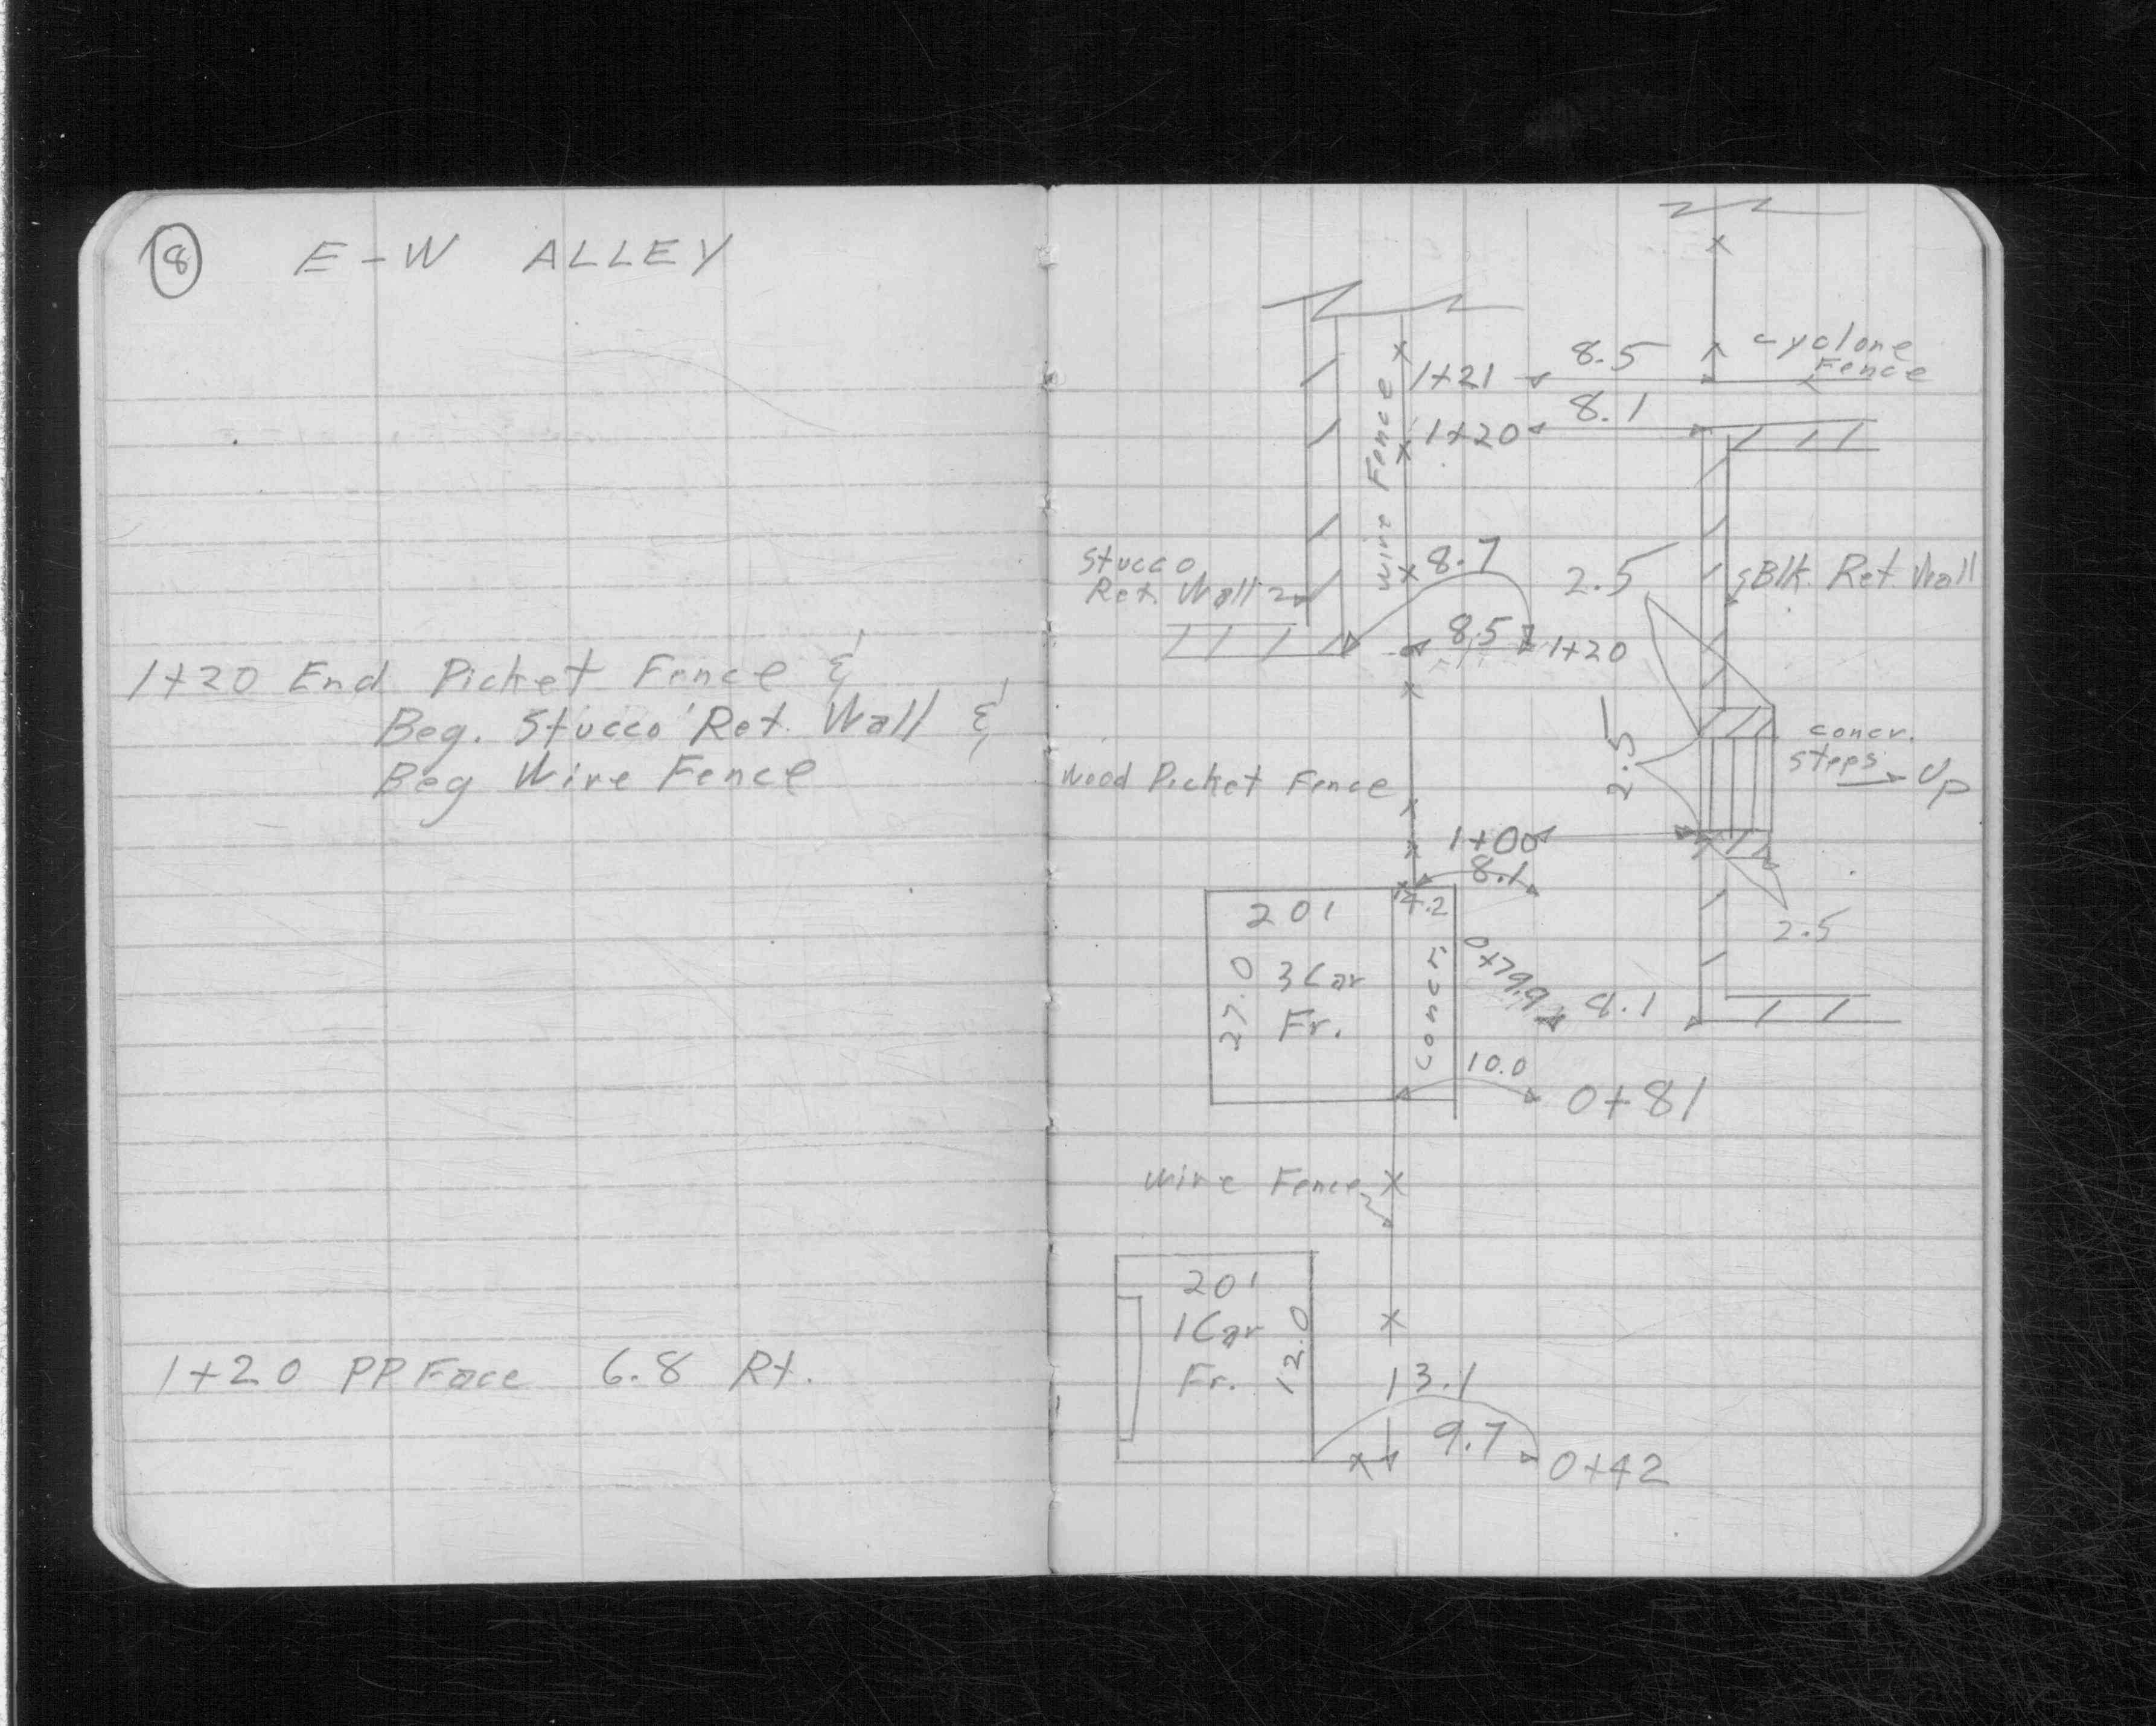 8 E-W ALLEY
1+20 End Picket Fence &
Beg. Stucco Ret. Wall &
Beg Wire Fence
1+20 PP Face 6.8 Rt.
cyclone
Fence
1+21 8.5
1+20 8.1
wire Fence
8.7
2.5
Stucco
Ret. Wall
Blk. Ret. Wall
8.5 1+20
concr.
steps
Up
2.5
Wood Picket Fence
1+00
8.1
4.2
201
27.0
3 Car
Fr.
concr
0+79.9 8.1
2.5
10.0
0+81
wire Fence
201
1 Car
Fr.
12.0
13.1
9.7
0+42